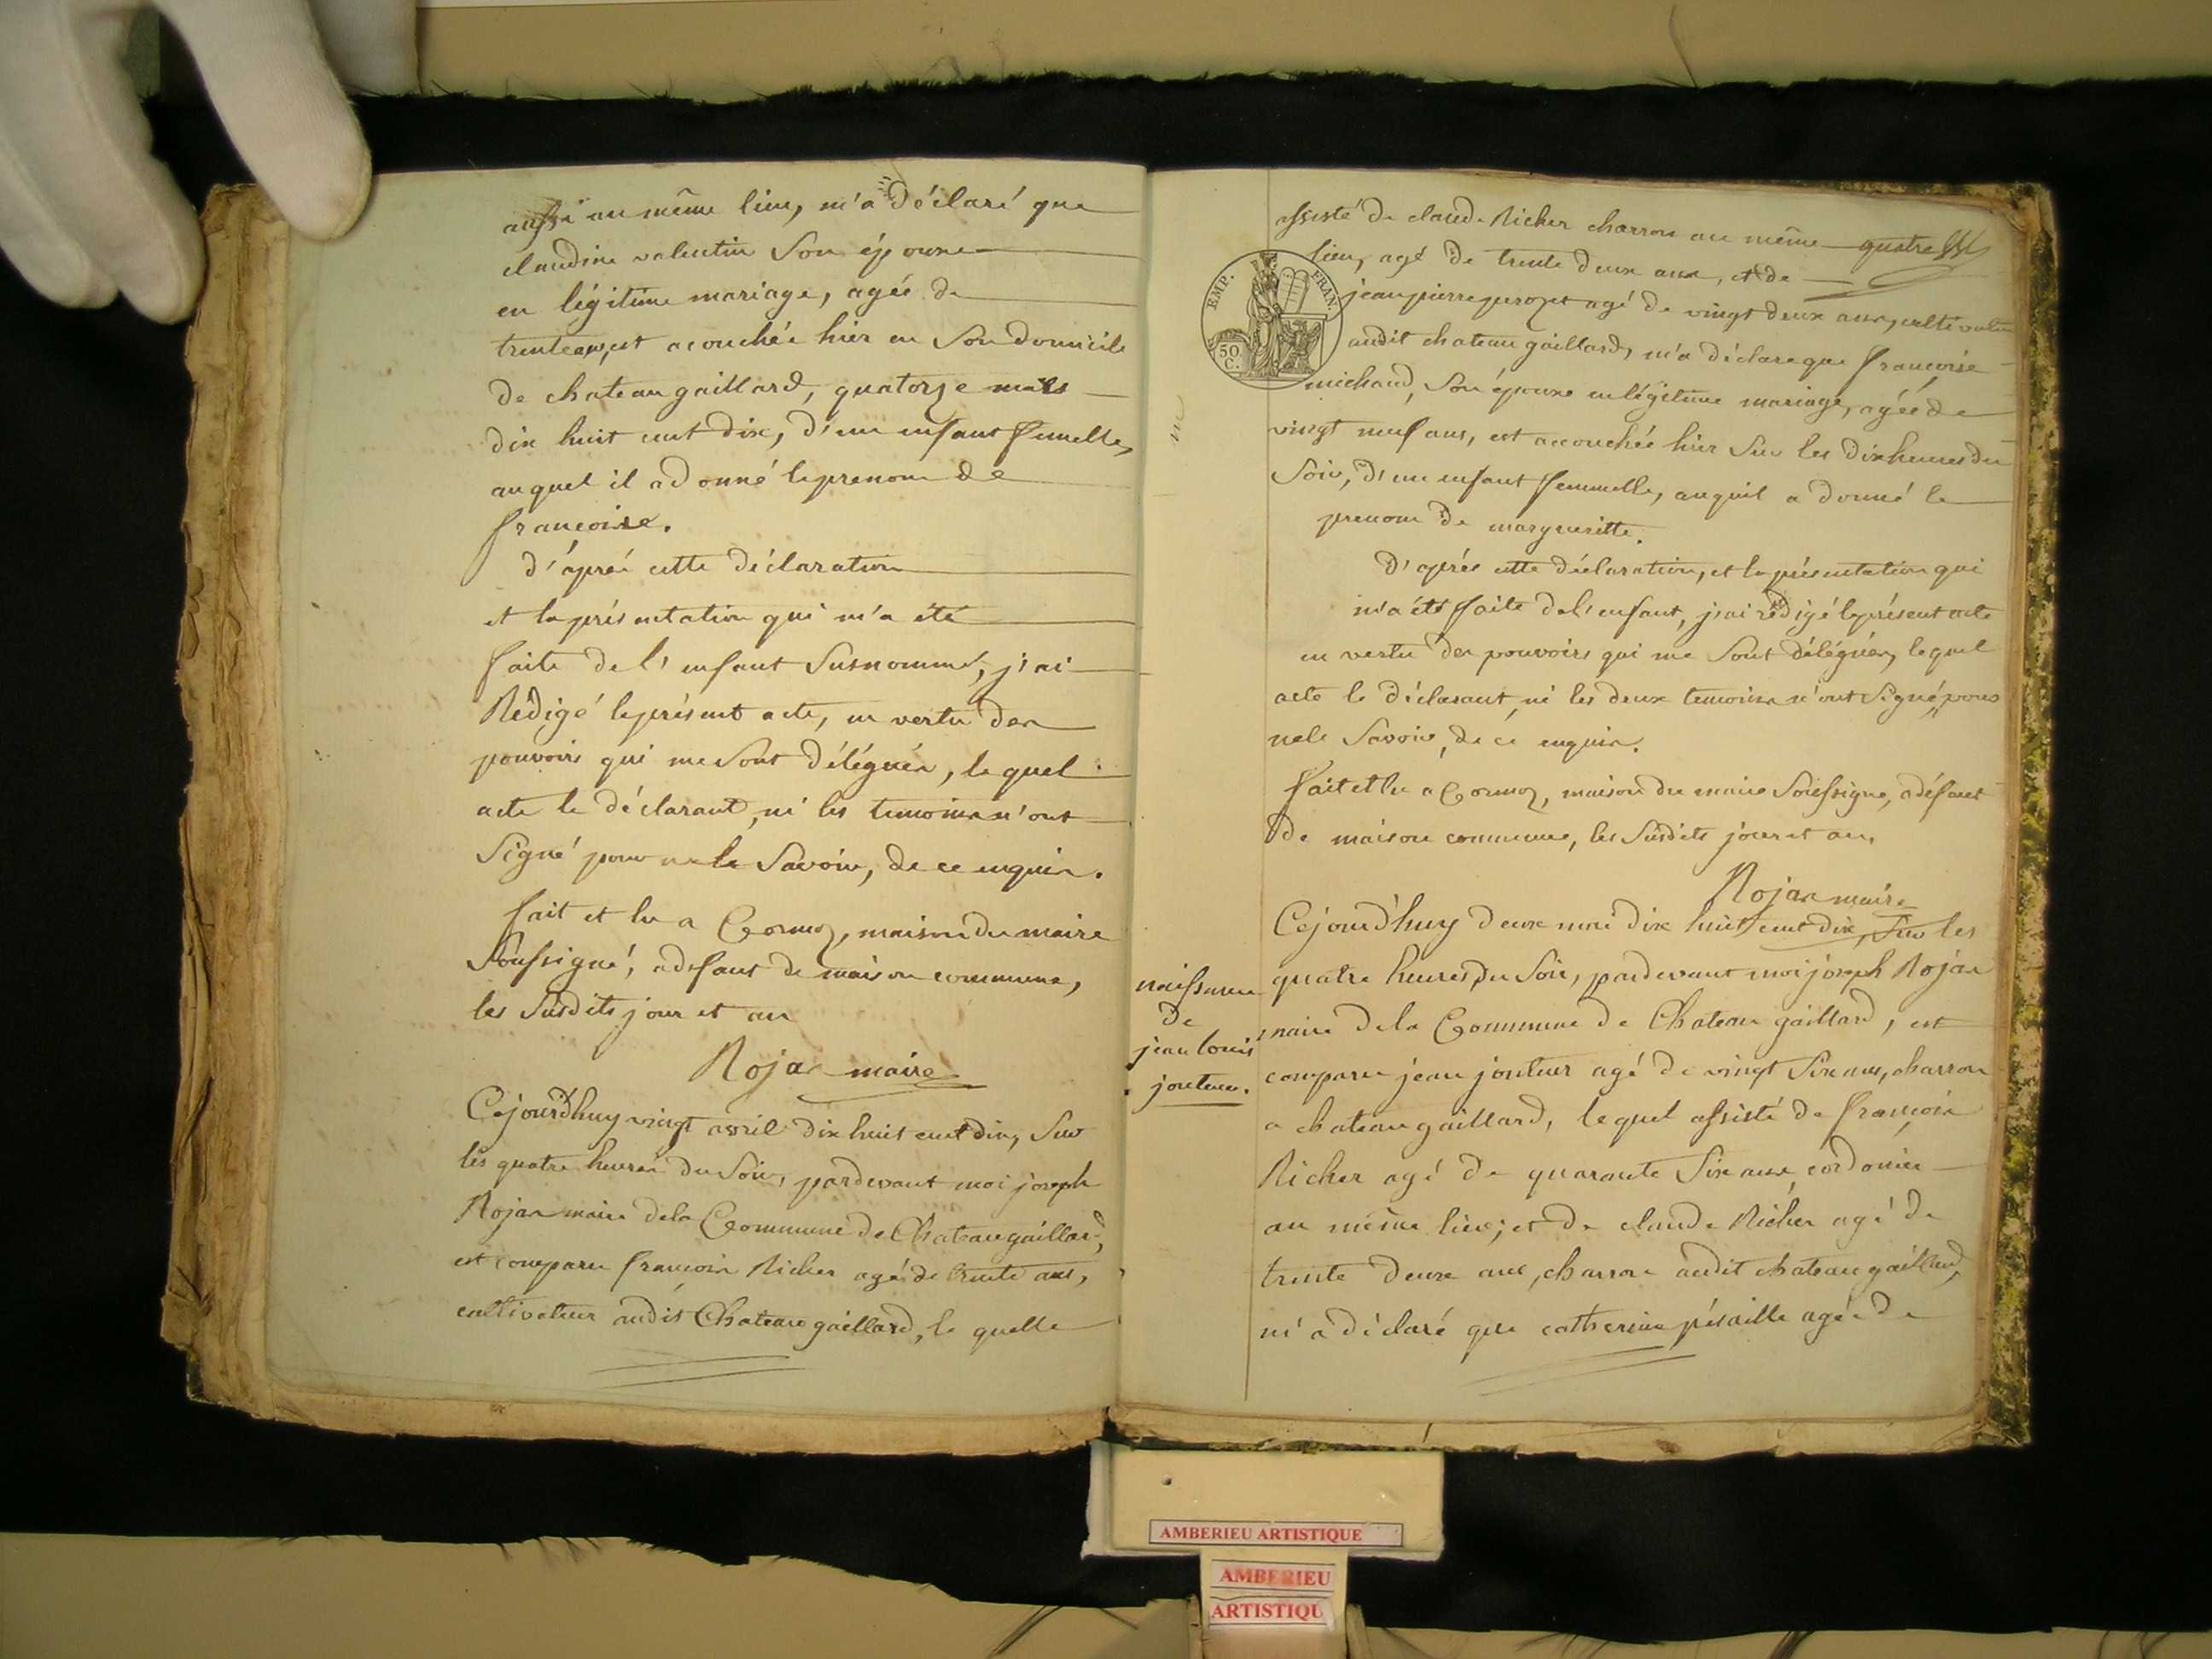 aussi au même lieu, m'a déclaré que
claudine valentin Son épouse
en légitime mariage, agée de
trente ans, est acouchée hier en Son domicile
de chateau gaillard, quatorze mars
dix huit cent dix, d'un enfant femelle,
auquel il a donné le prenom de
françoise.
d'après cette déclaration
et la présentation qui m'a été
faite de l'enfant Susnommé, j'ai
Rédigé le présent acte, en vertu des
pouvoirs qui me Sont délégués, lequel
acte le déclarant, ni les temoins n'ont
Signé pour ne le Savoir, de ce enquis.
fait et lu a Cormoz, maison du maire
Soussigné, a defaut de maison commune,
les Susdits jour et an
Rojas maire
Cejourd'huy vingt avril dix huit cent dix, Sur
les quatre heures du Soir, pardevant moi joseph
Rojas maire de la Commune de Chateaugaillard,
est comparu françois Richer agé de trente ans,
cultivateur audit Chateau gaillard, le quelle
assisté de claude Richer charron au même quatre
lieu, agé de trente deux ans, et de
jean pierre perozet agé de vingt deux ans, cultivateur
audit chateau gaillard, m'a déclare que françoise
michaud, Son épouse en légitime mariage, agée de
vingt neuf ans, est accouchée hier Sur les dix heures du
Soir, d'un enfant femmelle, auquil a donné le
prenom de margueritte.
D'après cette déclaration, et la présentation qui
m'a été faite de l'enfant, j'ai rédigé le présent acte
en vertu des pouvoirs qui me Sont délégués, lequel
acte le déclarant, ni les deux temoins n'ont Signé, pour
ne le Savoir, de ce enquis.
fait et lu a Cormoz, maison du maire Soussigné, a défaut
de maison commune, les Susdits jour et an.
Rojas maire
EMP. FRAN.
50 C.
naissance
de
jean louis
jouteur.
Cejourd'huy deux mai dix huit cent dix, Sur les
quatre heures du Soir, pardevant moi joseph Rojas
maire de la Commune de Chateau gaillard, est
comparu jean jouteur agé de vingt Six ans, charron
a chateau gaillard, lequel assisté de françois
Richer agé de quarante Six ans cordonier
au même lieu; et de claude Richer agé de
trente deux ans, charron audit chateau gaillard,
m'a déclaré que catherine pésaille agée de
AMBERIEU ARTISTIQUE
AMBERIEU
ARTISTIQU